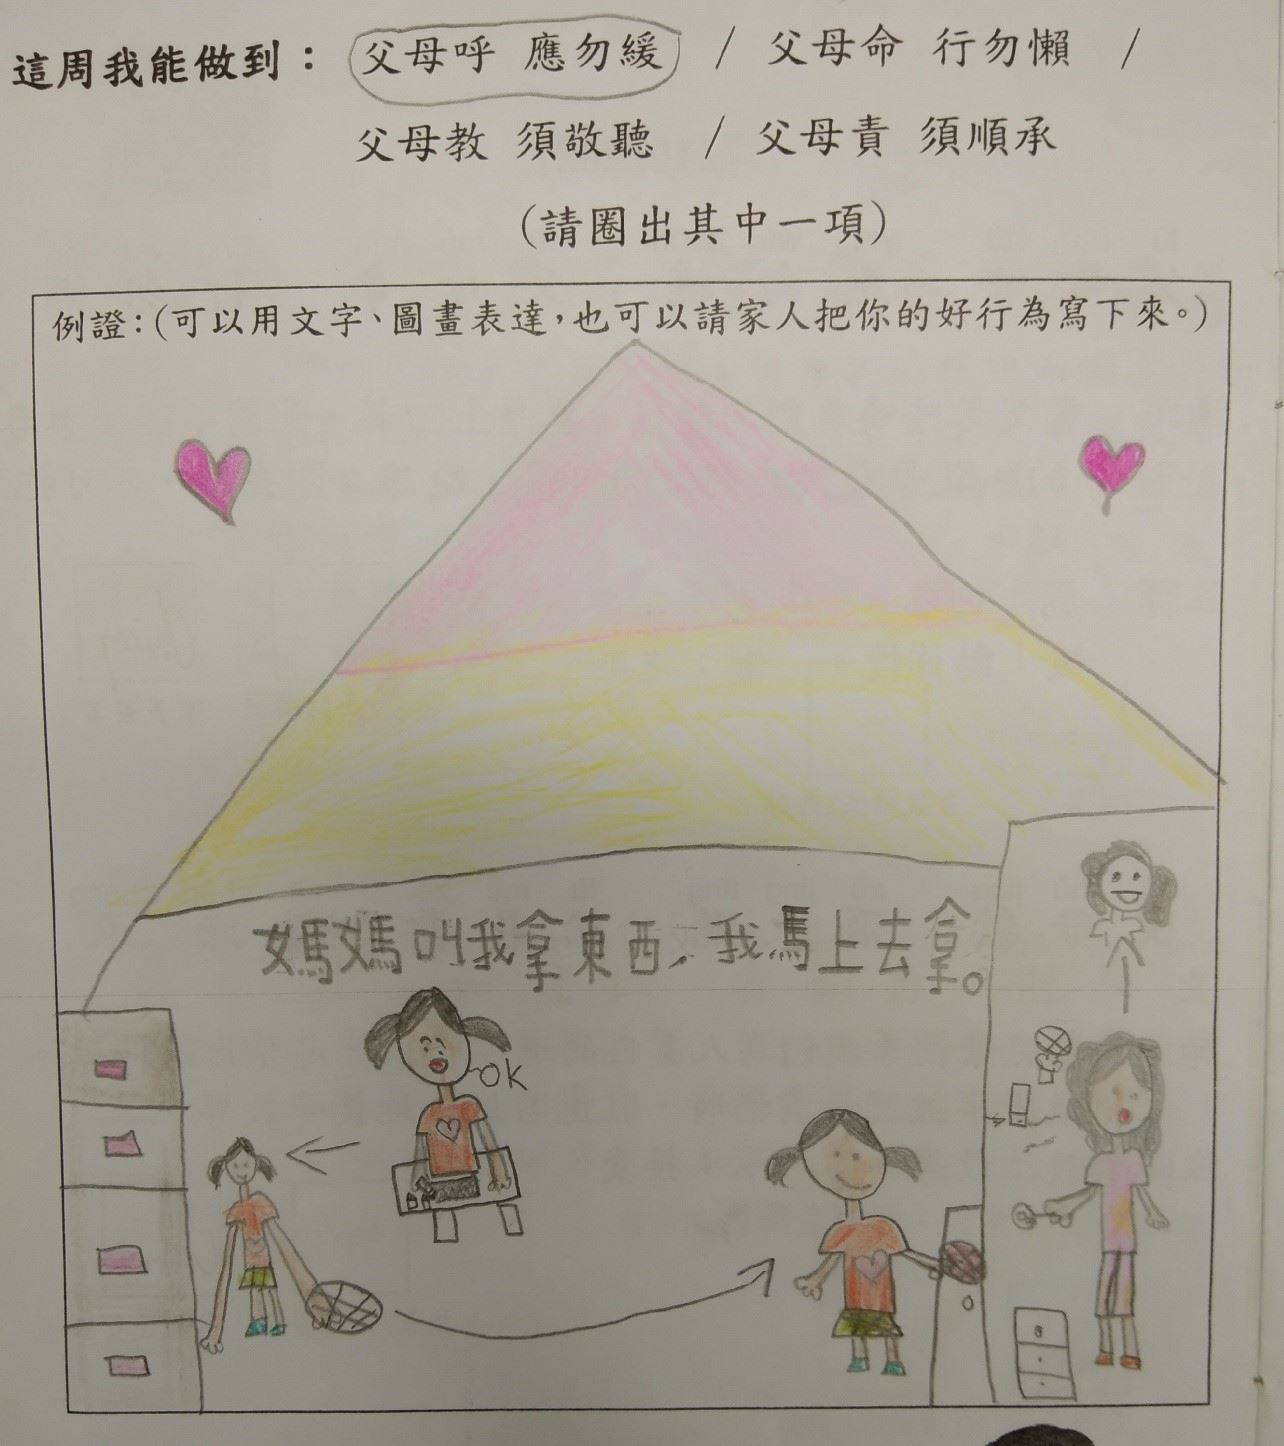 這周我能做到：父母呼 應勿緩 / 父母命 行勿懶 /
父母教 須敬聽 / 父母責 須順承
（請圈出其中一項）
例證：（可以用文字、圖畫表達，也可以請家人把你的好行為寫下來。）
媽媽叫我拿東西，我馬上去拿。
OK